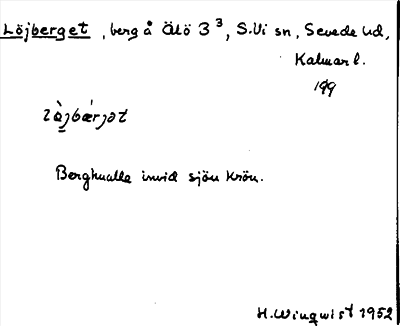 Löjberget, berg å Älö 3³, S.Vi sn, Sevede hd,
Kalmar l.
199
Berghualla invid sjön Krön.
H. Winqwist 1952